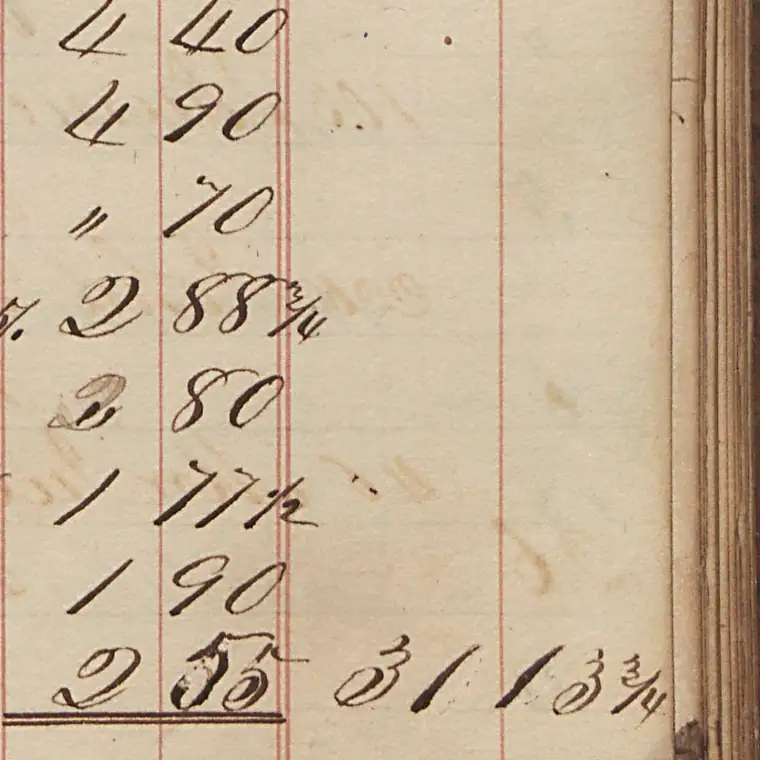 4 40
4 90
" 70
2 88 3/4
2 80
1 77 1/2
1 90
2 55 31 13 3/4